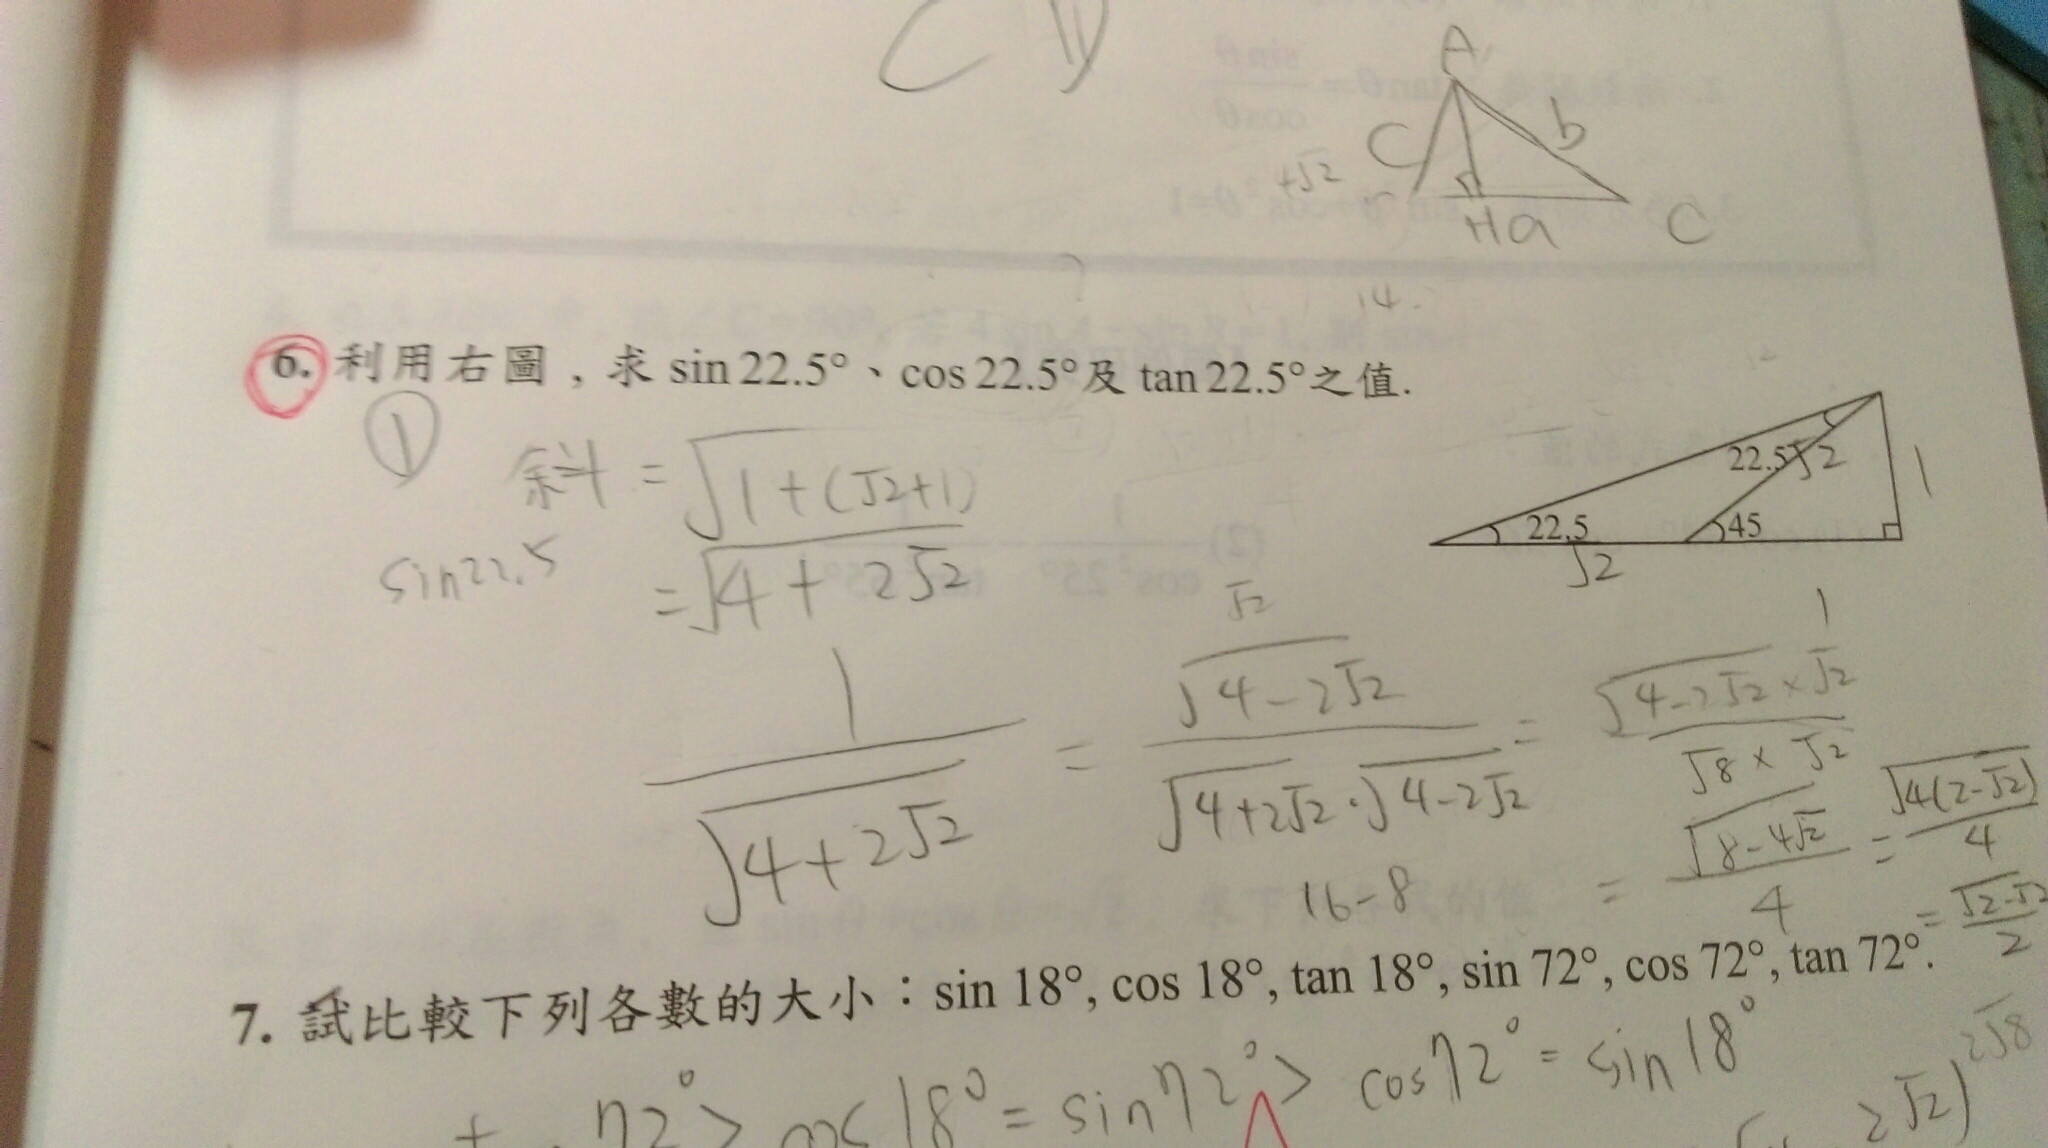 A
C
b
+√2
H a
C
14.
6. 利用右圖，求 sin 22.5°、cos 22.5°及 tan 22.5°之值.
①
斜 = √1+(√2+1)
sin22.5
= √4+2√2
22.5
√2
1
22.5
45
√2
√2
1
1/√4+2√2 = √4-2√2/√4+2√2·√4-2√2 = √4-2√2×√2/√8×√2
16-8
= √8-4√2/4 = √4(2-√2)/4
= √2-√2/2
7. 試比較下列各數的大小：sin 18°, cos 18°, tan 18°, sin 72°, cos 72°, tan 72°.
72° > cos 18° = sin72° > cos72° = sin18°
2√8
2√2)